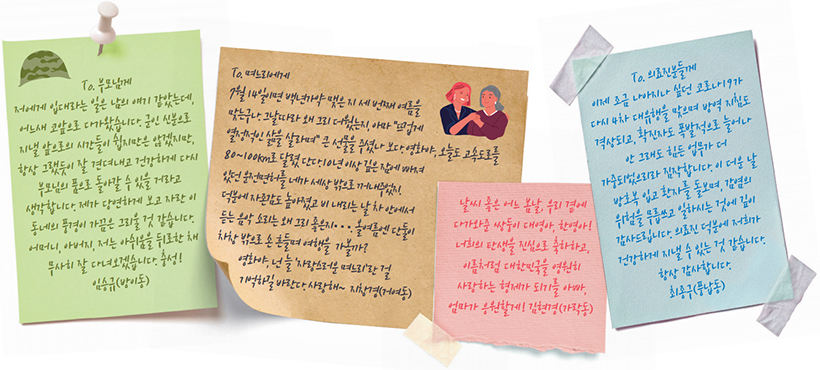 To. 부모님께
저에게 입대라는 일은 남의 얘기 같았는데,
어느새 코앞으로 다가왔습니다. 군인 신분으로
지낼 앞으로의 시간들이 쉽지만은 않겠지만,
항상 그랬듯이 잘 견뎌내고 건강하게 다시
부모님의 품으로 돌아갈 수 있을 거라고
생각합니다. 제가 당연하게 보고 자란 이
동네의 풍경이 가끔은 그리울 것 같습니다.
어머니, 아버지, 저는 아쉬움을 뒤로한 채
무사히 잘 다녀오겠습니다. 충성!
임승규(방이동)
To. 며느리에게
7월 14일이면 백년가약 맺은 지 세 번째 여름을
맞는구나. 그날따라 왜 그리 더웠는지, 아마 "뜨겁게
열정적인 삶을 살라며" 큰 선물을 주셨나 보다. 영화야, 오늘도 고속도로를
80~100km로 달렸단다. 10년 이상 깊은 잠에 빠져
있던 운전면허를 네가 세상 밖으로 꺼내주었지.
덕분에 자존감도 높아졌고 비 내리는 날 차 안에서
듣는 음악 소리는 왜 그리 좋은지... 올여름에 단둘이
차창 밖으로 손 흔들며 여행을 가볼까?
영화야, 넌 늘 '자랑스러운 며느리'란 걸
기억하길 바란다. 사랑해~ 지창경(거여동)
날씨 좋은 어느 봄날, 우리 곁에
다가와준 쌍둥이 대영아, 한영아!
너희의 탄생을 진심으로 축하하고,
이름처럼 대한민국을 영원히
사랑하는 형제가 되기를 아빠,
엄마가 응원할게! 김현경(가락동)
To. 의료진분들께
이제 조금 나아지나 싶던 코로나19가
다시 4차 대유행을 맞으며 방역 지침도
격상되고, 확진자도 폭발적으로 늘어나
안 그래도 힘든 업무가 더
가중되었으리라 짐작합니다. 이 더운 날
방호복 입고 환자를 돌보며, 감염의
위험을 무릅쓰고 일하시는 것에 깊이
감사드립니다. 의료진 덕분에 저희가
건강하게 지낼 수 있는 것 같습니다.
항상 감사합니다.
최종구(풍납동)